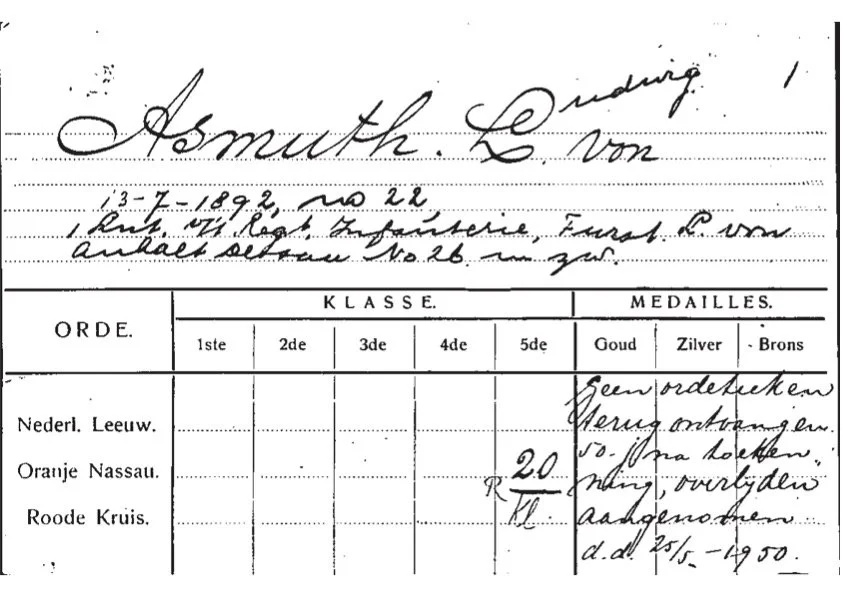 Ludwig 1
Asmuth. L. von
13-7-1892, no 22,
1 Lnt. v/h Regt. Infanterie, Furst. L. von
Anhalt Dessau No 26. m zw.
ORDE. KLASSE. MEDAILLES.
1ste 2de 3de 4de 5de Goud Zilver Brons
Geen ordeteeken
Nederl. Leeuw. terug ontvangen.
50 j. na toeken-
Oranje Nassau. R 20 ning, overlijden
Roode Kruis. Kl. aangenomen
d.d. 25/5 - 1950.